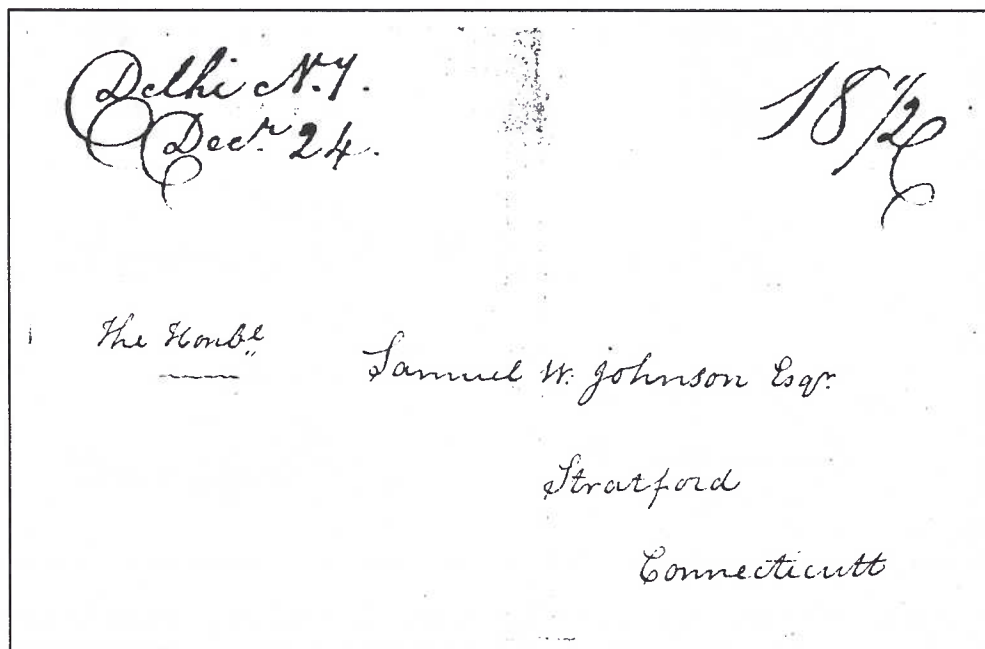 Delhi N.Y.
Decr. 24.
18 1/2
The Honble
Samuel W. Johnson Esqr.
Stratford
Connecticutt